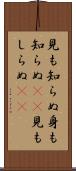 見も知らぬ身も
知らぬ《《見も
しらぬ》》